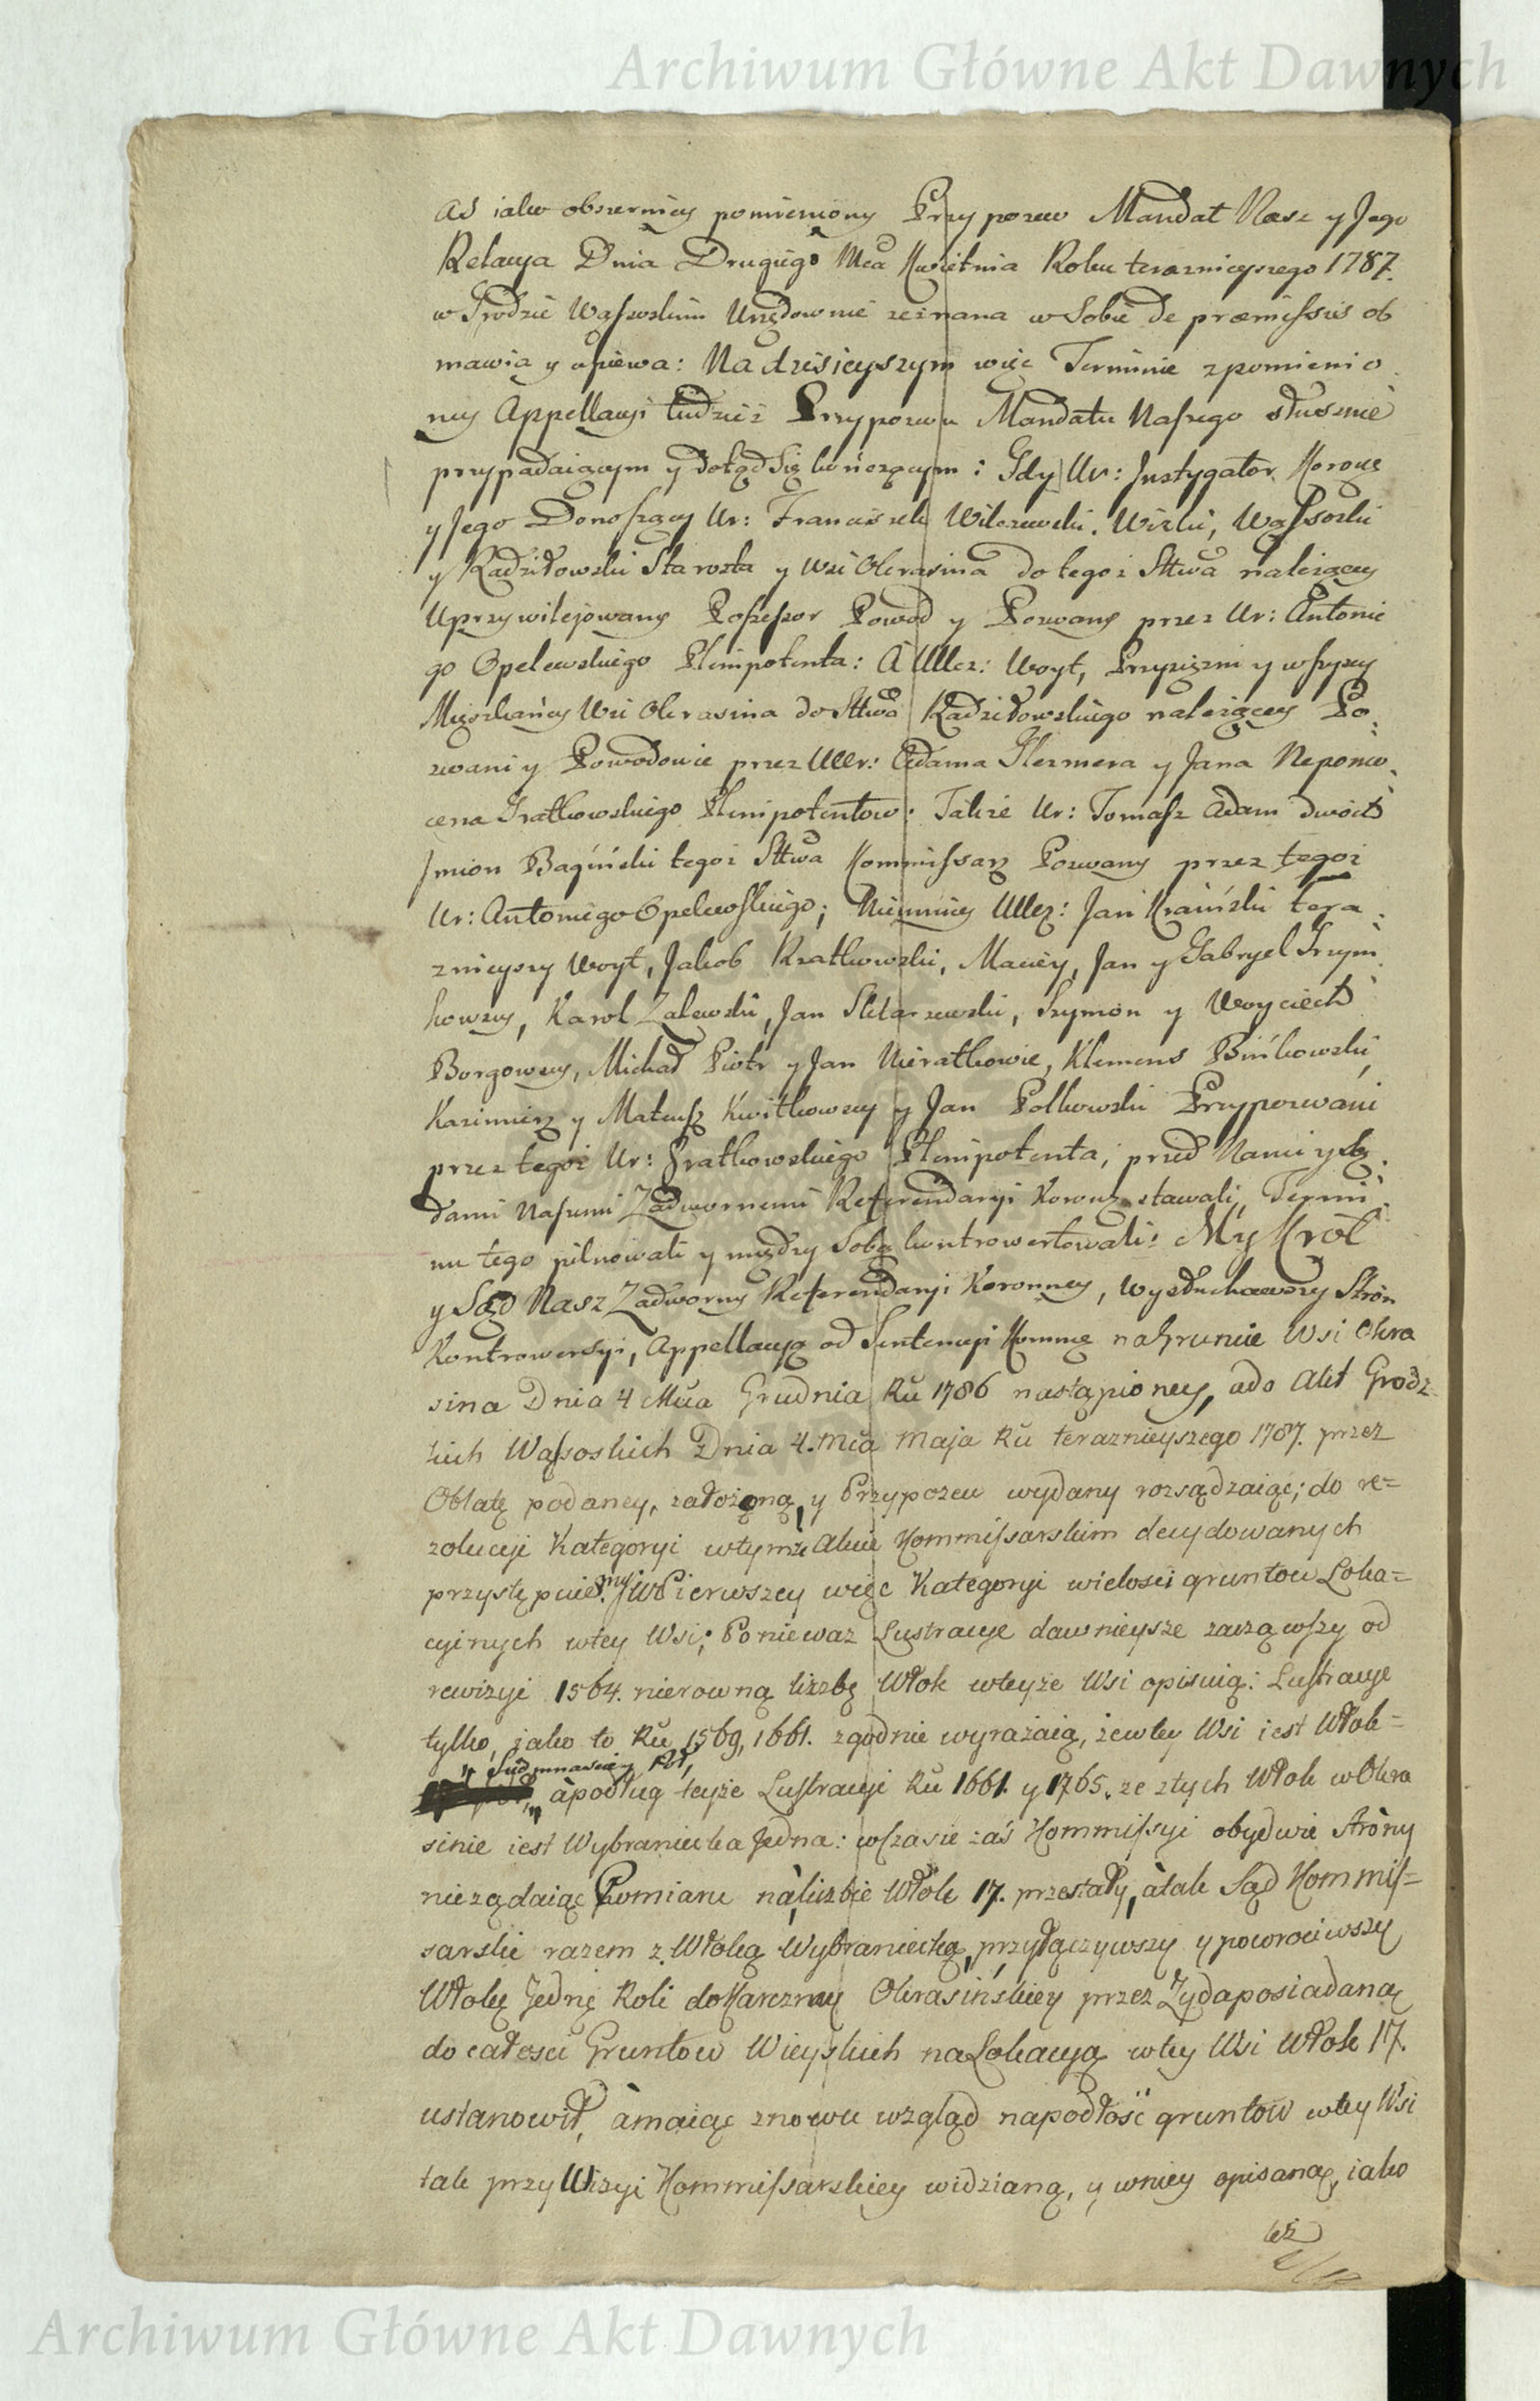 Archiwum Główne Akt Dawnych
as iako obszerniey pomieniony Przypozew Mandat Nasz y Jego
Relacya Dnia Drugiego Mca Kwietnia Roku teraznieyszego 1787.
w Grodzie Wąsoskim Urzędownie zeznana w Sobie de præmissis ob
mawia y opiewa: Na dzisieyszym więc Terminie z pomienio
ney Appellacyi tudzież Przypozwu Mandatu Naszego słusznie
przypadaiącym y dotąd się kończącym: Gdy Ur: Instygator Koronę
y Jego Donoszący Ur: Franciszek Wilczewski. Wizki, Wąsoski
y Radziłowski Starosta y Wsi Okrasina do tegoż Sttwa należącey
Uprzywilejowany Possessor Powod y Pozwany przez Ur: Antonie
go Opelewskiego Plenipotenta: A UUcz: Woyt, Przysiężni y wszyscy
Mięszkańcy Wsi Okrasina do Sttwa Radziłowskiego należącey Po
zwani y Powodowie przez UUr: Adama Klezmera y Jana Nepomu
cena Gratkowskiego Plenipotentow: Także Ur: Tomasz Adam dwoch
Jmion Bagiński tegoż Sttwa Kommissarz Pozwany przez tegoż
Ur: Antoniego Opelewskiego; Niemniey UUcz: Jan Kraiński tera
znieyszy Woyt, Jakob Kratkowski, Maciey, Jan y Gabryel Grzym
kowscy, Karol Zalewski, Jan Sklarzewski, Szymon y Woyciech
Borgowscy, Michał Piotr y Jan Nieratkowie, Klemens Bińkowski,
Kazimierz y Mateusz Kwitkowscy y Jan Polkowski Przypozwani
przez tegoż Ur: Gratkowskiego Plenipotenta, przed Nami y Sę
dami Naszemi Zadwornemi Referendaryi Koronę stawali, Termi
nu tego pilnowali y między Sobą kontrowertowali: My Krol
y Sąd Nasz Zadworny Referendaryi Koronney, wysłuchawszy Stron
Kontrowersyi, Appellacyą od Sentencyi Kommę na Gruncie Wsi Okra
sina Dnia 4 Mca Grudnia Ru 1786 nastąpioney, a do Akt Grodz
kich Wąsoskich Dnia 4. Mca Maja Ru teraznieyszego 1787. przez
Oblatę podaney, założoną, y Przypozew wydany rozsądzaiąc; do re=
zolucyi Kategoryi w tymże Akcie Kommissarskim decydowanych
przystępuiemy. J w Pierwszey więc Kategoryi wielosci gruntow Loka=
cyinych w tey Wsi; Poniewaz Lustracye dawnieysze zacząwszy od
rewizyi 1564. nierowną liczbę Włok w teyże Wsi opisuią: Lustracye
tylko, iako to Ru 1569, 1661. zgodnie wyrażaią, że w tey Wsi iest Włok=
Siedmnaście y Pół,
à podług teyże Lustracyi Ru 1661. y 1765. że z tych Włok w Okra
sinie iest Wybraniecka Jedna: w czasie zaś Kommissyi obydwie Strony
nieżądaiąc Pomiaru na liczbie Włok 17. przestały, à tak Sąd Kommis=
sarski razem z Włoką Wybraniecką, przyłączywszy y powrociwszy
Włokę Jednę Roli do Karczmy Okrasińskiey przez Zyda posiadaną
do całosci Gruntow Wieyskich na Lokacyą w tey Wsi Włok 17.
ustanowił, à maiąc znowu wzgląd na podłość gruntow w tey Wsi
tak przy Wizyi Kommissarskiey widzianą, y w niey opisaną, iako
też
Archiwum Główne Akt Dawnych